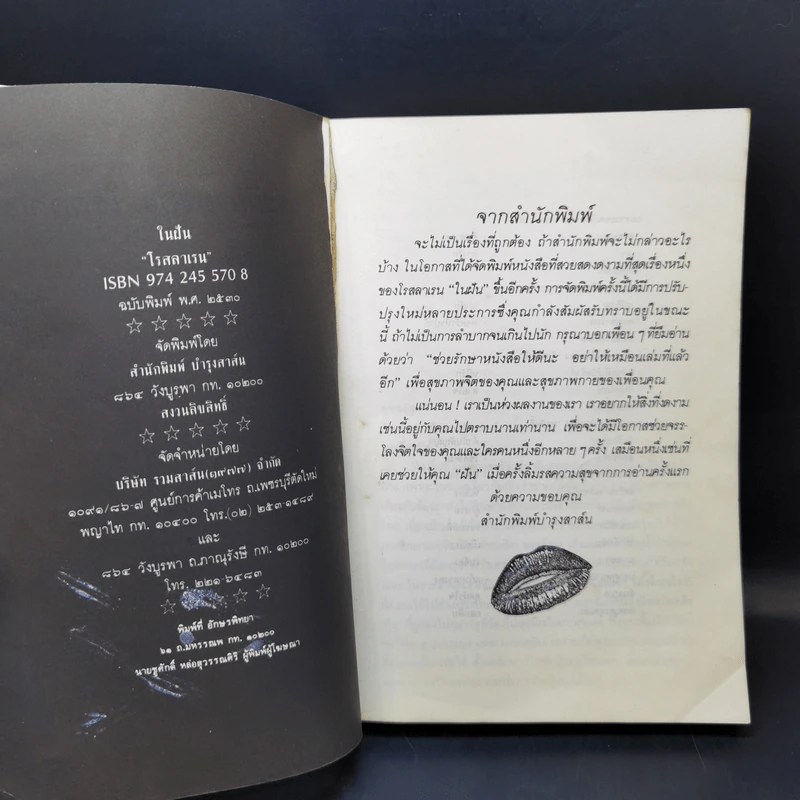 ในฝัน
"โรสลาเรน"
ISBN 974 245 570 8
ฉบับพิมพ์ พ.ศ. ๒๕๓๐
☆ ☆ ☆ ☆ ☆
จัดพิมพ์โดย
สำนักพิมพ์ บำรุงสาส์น
๘๖๔ วังบูรพา กท. ๑๐๒๐๐
สงวนลิขสิทธิ์
☆ ☆ ☆ ☆ ☆
จัดจำหน่ายโดย
บริษัท รวมสาส์น(๑๙๗๗) จำกัด
๑๐๙๑/๘๖-๗ ศูนย์การค้าเมโทร ถ.เพชรบุรีตัดใหม่
พญาไท กท. ๑๐๔๐๐ โทร.(๐๒) ๒๕๓-๑๔๘๙
และ
๘๖๔ วังบูรพา ถ.ภาณุรังษี กท. ๑๐๒๐๐
โทร. ๒๒๑-๖๔๘๓
☆ ☆ ☆ ☆ ☆
พิมพ์ที่ อักษรพิทยา
๖๑ ถ.มหรรณพ กท. ๑๐๒๐๐
นายชูศักดิ์ หล่อสุวรรณศิริ ผู้พิมพ์ผู้โฆษณา
จากสำนักพิมพ์
จะไม่เป็นเรื่องที่ถูกต้อง ถ้าสำนักพิมพ์จะไม่กล่าวอะไร
บ้าง ในโอกาสที่ได้จัดพิมพ์หนังสือที่สวยสดงดงามที่สุดเรื่องหนึ่ง
ของโรสลาเรน "ในฝัน" ขึ้นอีกครั้ง การจัดพิมพ์ครั้งนี้ได้มีการปรับ-
ปรุงใหม่หลายประการซึ่งคุณกำลังสัมผัสรับทราบอยู่ในขณะ
นี้ ถ้าไม่เป็นการลำบากจนเกินไปนัก กรุณาบอกเพื่อน ๆ ที่ยืมอ่าน
ด้วยว่า "ช่วยรักษาหนังสือให้ดีนะ อย่าให้เหมือนเล่มที่แล้ว
อีก" เพื่อสุขภาพจิตของคุณและสุขภาพกายของเพื่อนคุณ
แน่นอน ! เราเป็นห่วงผลงานของเรา เราอยากให้สิ่งที่งดงาม
เช่นนี้อยู่กับคุณไปตราบนานเท่านาน เพื่อจะได้มีโอกาสช่วยจรร-
โลงจิตใจของคุณและใครคนหนึ่งอีกหลาย ๆ ครั้ง เสมือนหนึ่งเช่นที่
เคยช่วยให้คุณ "ฝัน" เมื่อครั้งลิ้มรสความสุขจากการอ่านครั้งแรก
ด้วยความขอบคุณ
สำนักพิมพ์บำรุงสาส์น